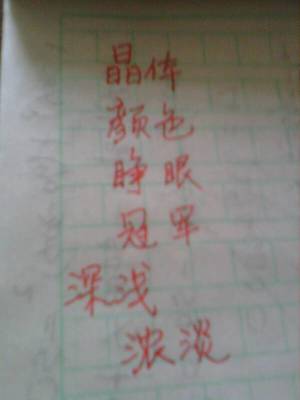 晶体
颜色
睁眼
冠军
深浅
浓淡